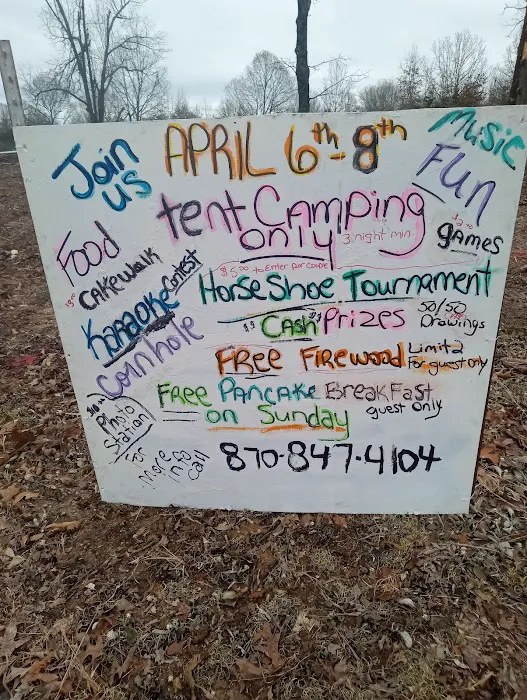 Join us
APRIL 6th - 8th
Music
Fun
tent Camping
only
3 night min.
Food
games
CAKEWALK
$5.00 to Enter per couple
Karaoke Contest
HorseShoe Tournament
$$ Cash $$ Prizes
50/50
Drawings
Cornhole
FREE FIREWOOD
Limit 2
For guest only
FREE PANCAKE BREAKFAST
on Sunday
guest only
Photo
Station
For
More
info
Call
870-847-4104